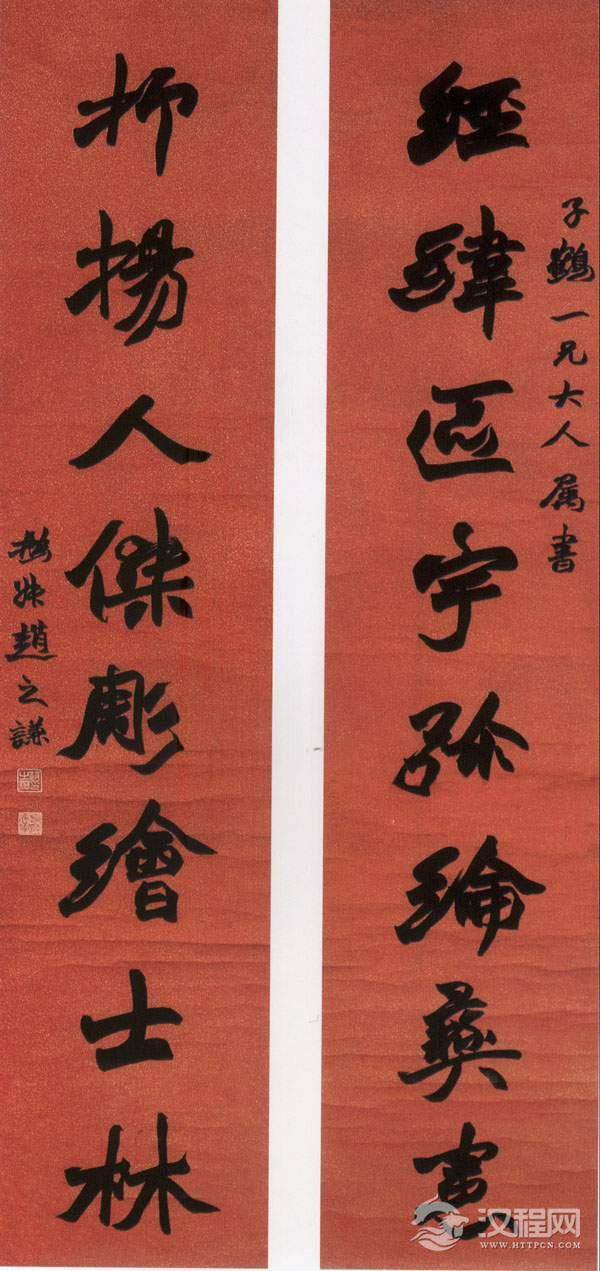 子鶴一兄大人属書
經緯區宇弥綸彝憲
抑揚人傑彫繪士林
撝叔趙之謙
汉程网
WWW.HTTPCN.COM